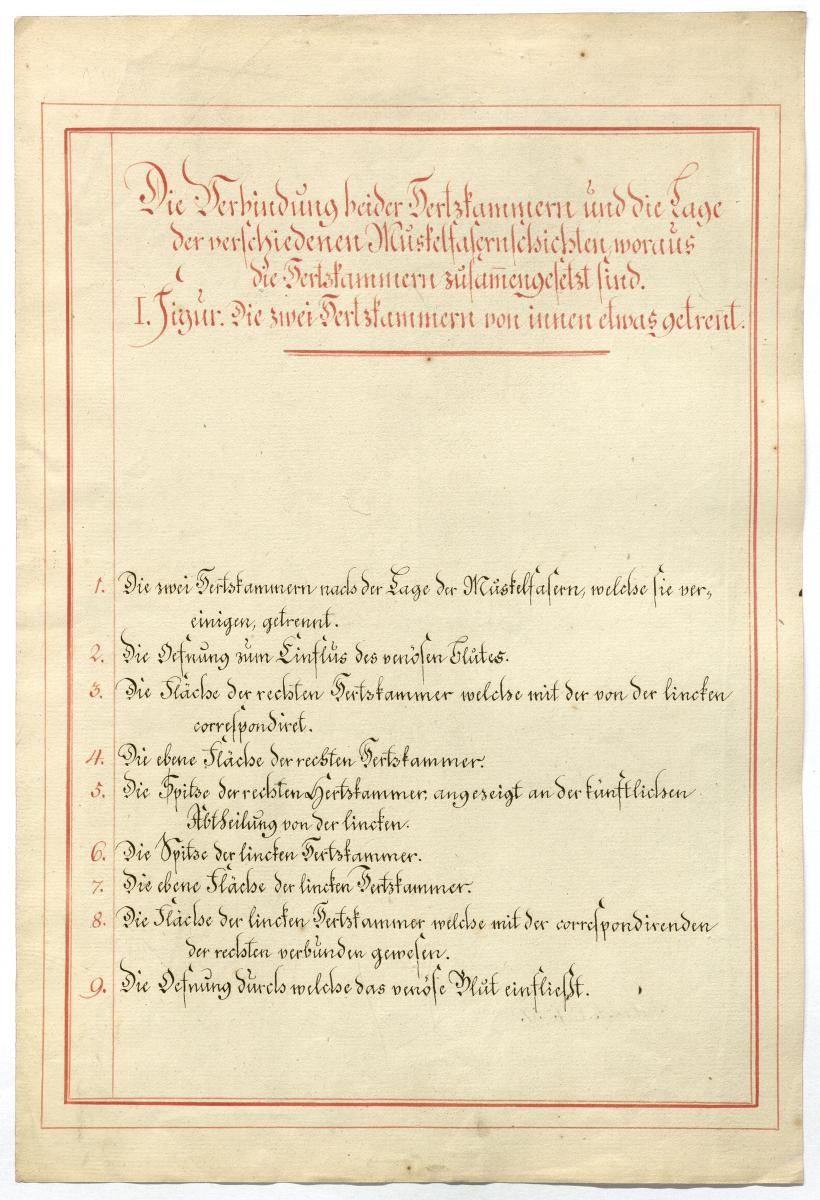 Die Verbindung beider Hertzkammern und die Lage
der verschiedenen Muskelfasernschichten, woraus
die Hertzkammern zusam̄engesetzt sind.
I. Figur. Die zwei Hertzkammern von innen etwas getrent.
1. Die zwei Hertzkammern nach der Lage der Muskelfasern, welche sie ver,
einigen, getrennt.
2. Die Oefnung zum Einflus des venösen Blutes.
3. Die Fläche der rechten Hertzkammer welche mit der von der lincken
correspondiret.
4. Die ebene Fläche der rechten Hertzkammer.
5. Die Spitze der rechten Hertzkammer, angezeigt an der künftlichen
Abtheilung von der lincken.
6. Die Spitze der lincken Hertzkammer.
7. Die ebene Fläche der lincken Hertzkammer.
8. Die Fläche der lincken Hertzkammer welche mit der correspondirenden
der rechten verbunden gewesen.
9. Die Oefnung durch welche das venöse Blut einfließt.